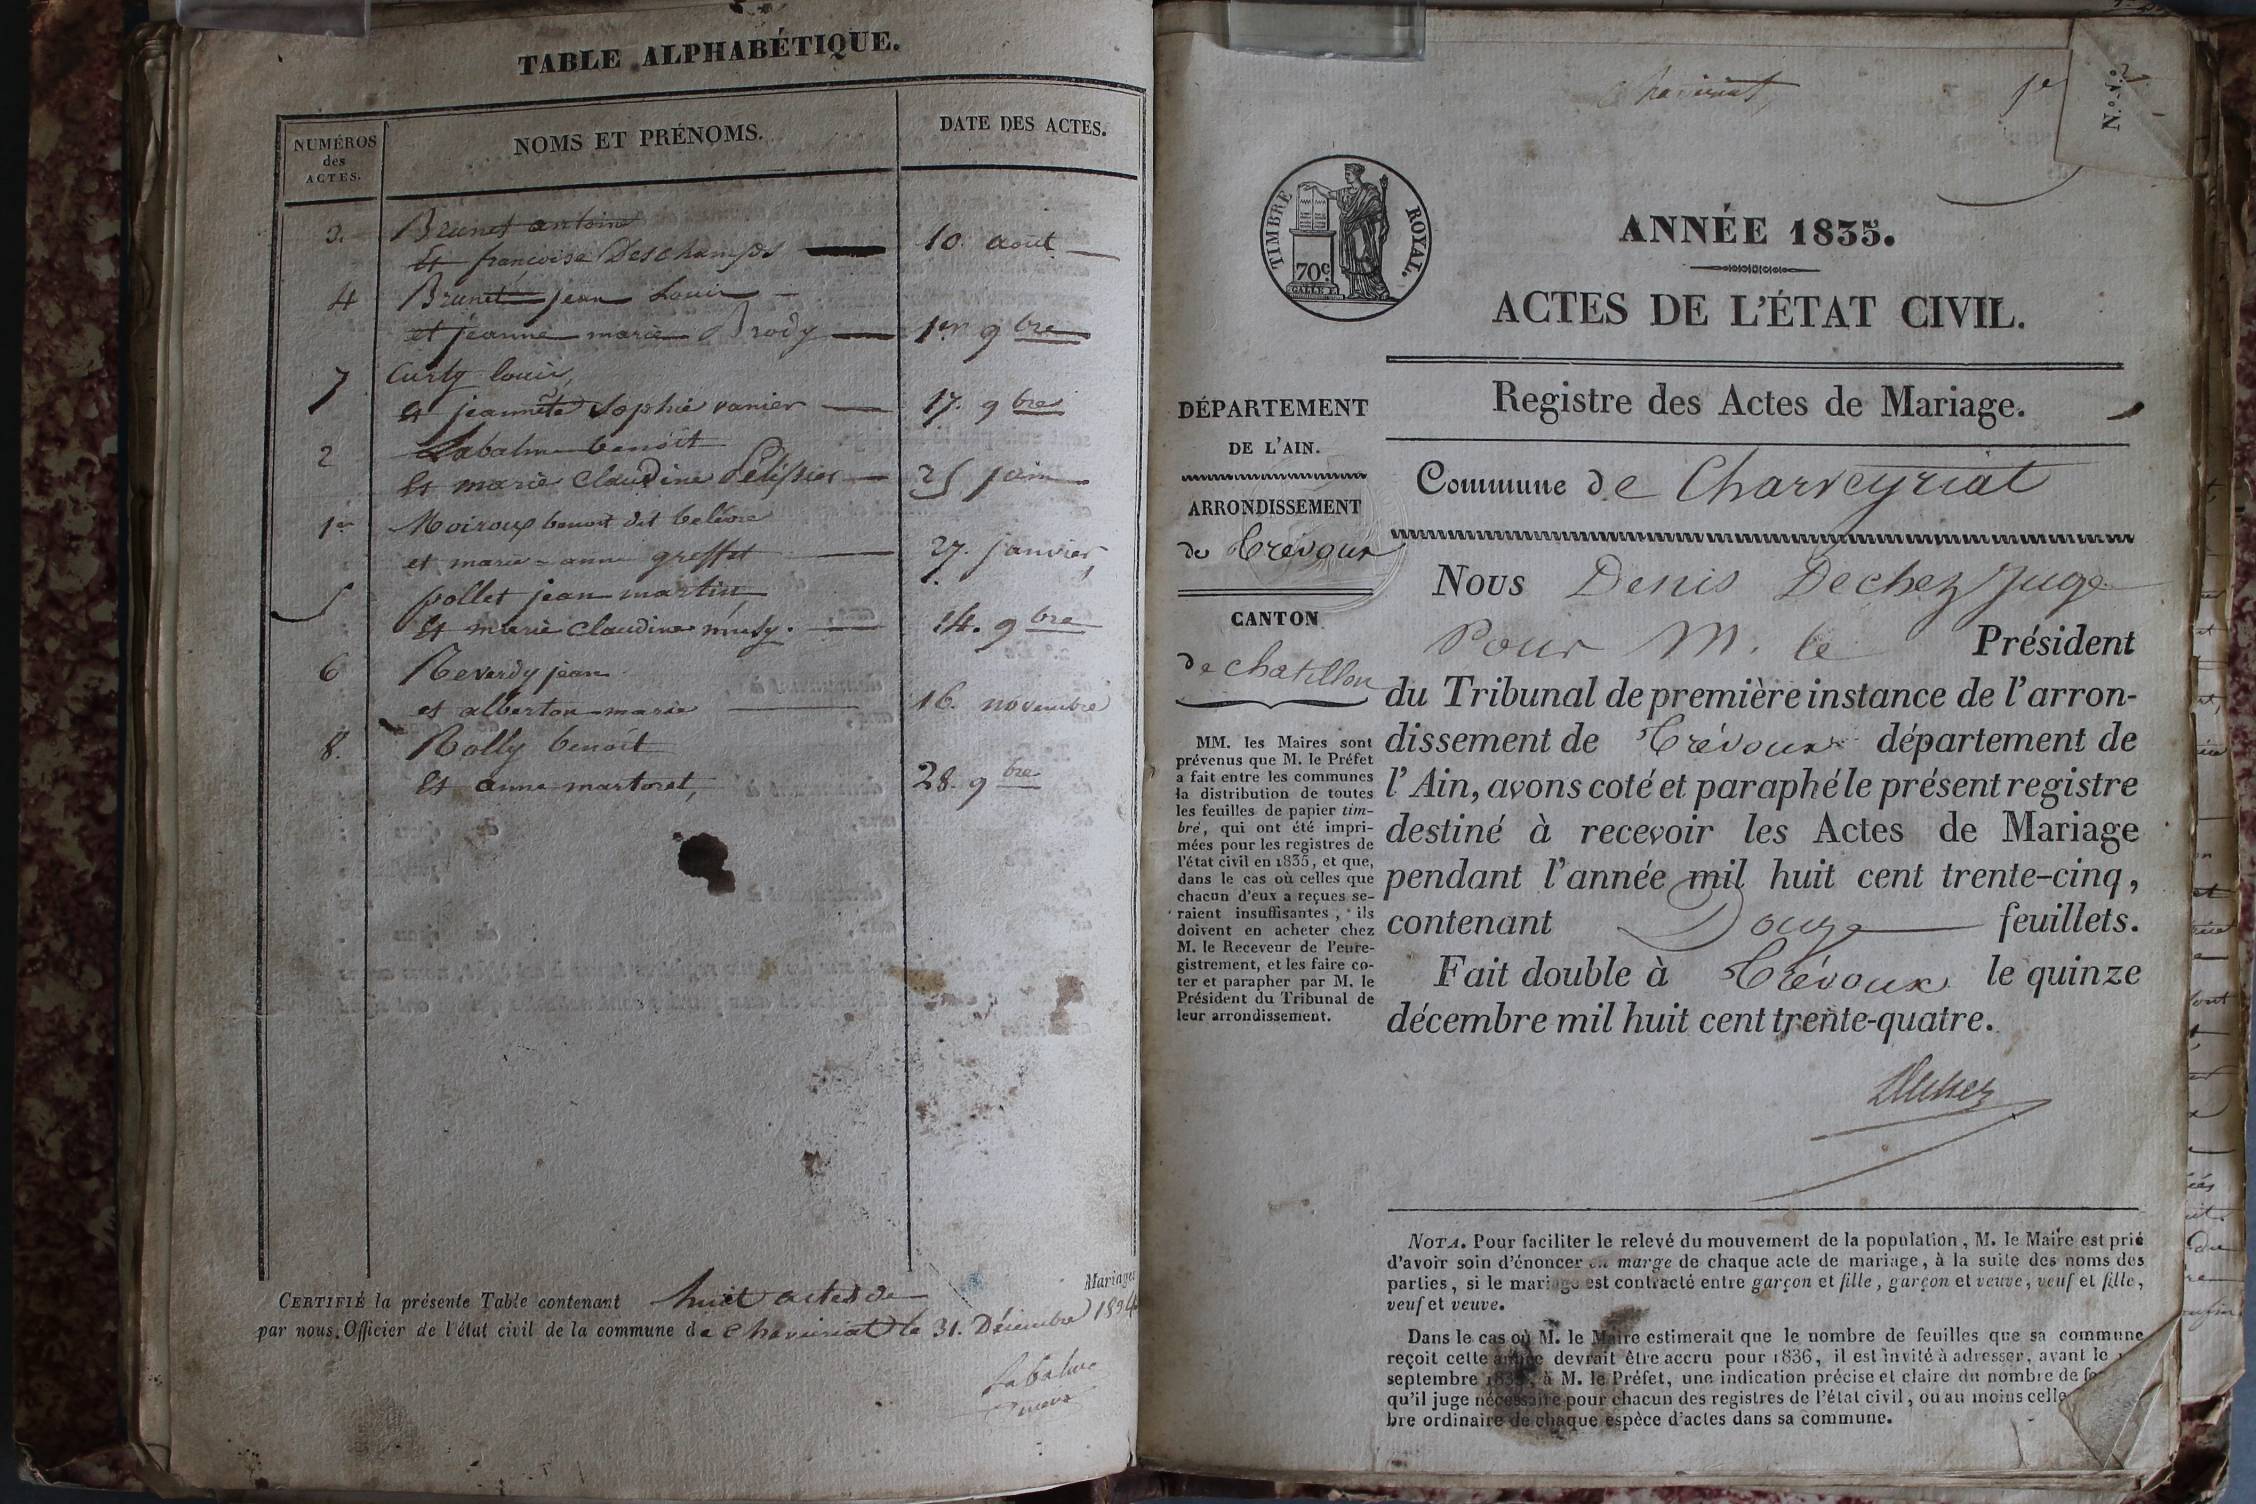 TABLE ALPHABÉTIQUE.
NUMÉROS
des
ACTES.
NOMS ET PRÉNOMS.
DATE DES ACTES.
3. Brunet antoine
et françoise Deschamps 10. août
4 Brunet jean Louis
et jeanne marie Brody 1er 9bre
7 Curty louis,
et jeannete Sophie vanier 17. 9bre
2 Labalme benoit
et marie Claudine Pelissier 25 juin
1er Moiroux benoit dit belevre
et marie-anne greffet 27. janvier,
5 pollet jean martin,
et marie Claudine musy. 14. 9bre
6 Reverdy jean
et alberton marie 16. novembre
8. Rolly benoit
et anne martoret, 28. 9bre
Mariages
CERTIFIÉ la présente Table contenant huit actes de
par nous, Officier de l'état civil de la commune de Chaveiriat le 31. Décembre 1834
Labalme
maire
Chaveiriat,
1er
N.º 1.º
TIMBRE ROYAL.
70c.
ANNÉE 1835.
ACTES DE L'ÉTAT CIVIL.
Registre des Actes de Mariage.
DÉPARTEMENT
DE L'AIN.
ARRONDISSEMENT
de Trévoux
CANTON
de chatillon
MM. les Maires sont
prévenus que M. le Préfet
a fait entre les communes
la distribution de toutes
les feuilles de papier tim-
bré, qui ont été impri-
mées pour les registres de
l'état civil en 1835, et que,
dans le cas où celles que
chacun d'eux a reçues se-
raient insuffisantes, ils
doivent en acheter chez
M. le Receveur de l'enre-
gistrement, et les faire co-
ter et parapher par M. le
Président du Tribunal de
leur arrondissement.
Commune de Charveyriat
Nous Denis Dechez Juge
Pour M. le Président
du Tribunal de première instance de l'arron-
dissement de Trévoux département de
l'Ain, avons coté et paraphé le présent registre
destiné à recevoir les Actes de Mariage
pendant l'année mil huit cent trente-cinq,
contenant Douze feuillets.
Fait double à Trévoux le quinze
décembre mil huit cent trente-quatre.
Dechez
NOTA. Pour faciliter le relevé du mouvement de la population, M. le Maire est prié
d'avoir soin d'énoncer en marge de chaque acte de mariage, à la suite des noms des
parties, si le mariage est contracté entre garçon et fille, garçon et veuve, veuf et fille,
veuf et veuve.
Dans le cas où M. le Maire estimerait que le nombre de feuilles que sa commune
reçoit cette année devrait être accru pour 1836, il est invité à adresser, avant le
septembre 1835, à M. le Préfet, une indication précise et claire du nombre de
qu'il juge nécessaire pour chacun des registres de l'état civil, ou au moins celle
bre ordinaire de chaque espèce d'actes dans sa commune.